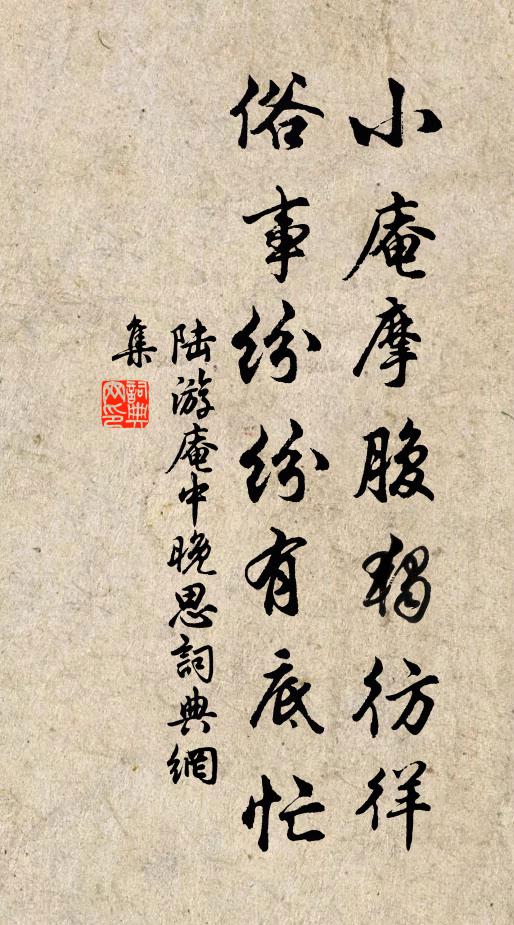 小庵摩腹獨彷徉
俗事紛紛有底忙
陸游庵中晚思詞典網
集
詞典
网印